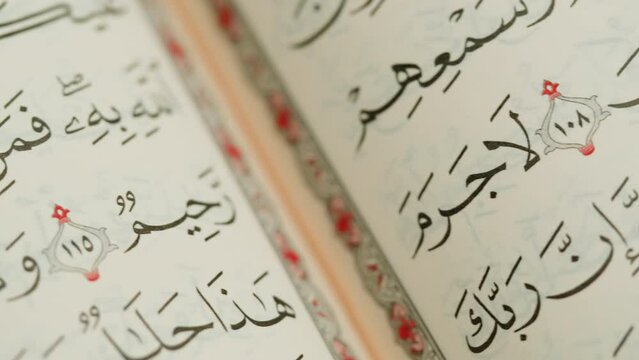 وَسَمْعِهِمْ
١٠٨ لَا جَرَمَ
إِنَّ رَبَّكَ
بِهِۦ
رَّحِيمٌ ١١٥
هَٰذَا حَلَٰلٌ